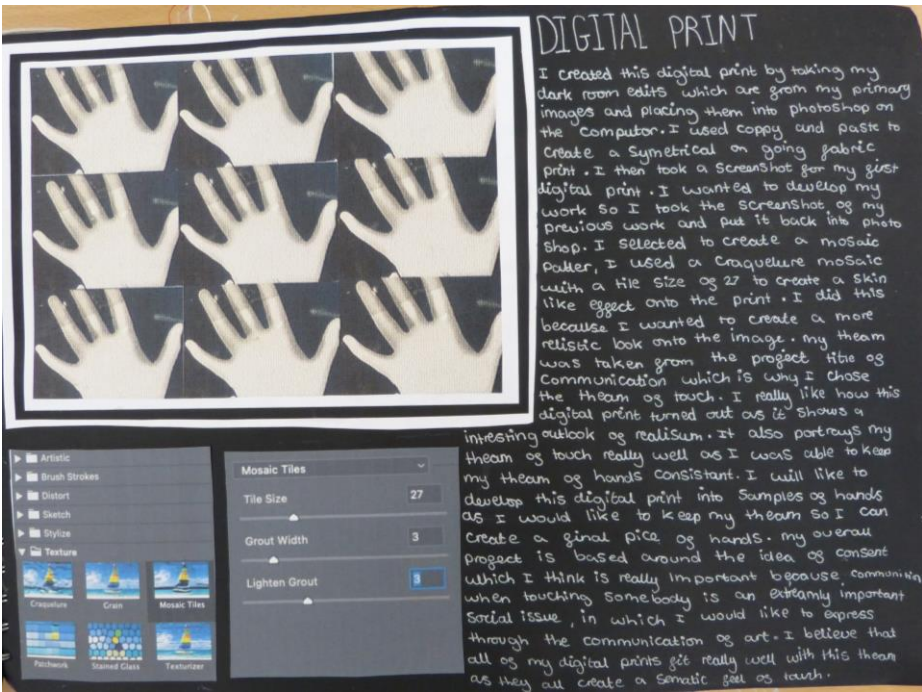 DIGITAL PRINT
I created this digital print by taking my
dark room edits which are from my primary
images and placing them into photoshop on
the computor. I used coppy and paste to
create a symetrical on going fabric
print. I then took a screenshot for my first
digital print. I wanted to develop my
work so I took the screenshot of my
previous work and put it back into photo
shop. I selected to create a mosaic
patter, I used a craquelure mosaic
with a tile size of 27 to create a skin
like effect onto the print. I did this
because I wanted to create a more
relistic look onto the image. my theam
was taken from the project title of
communication which is why I chose
the theam of touch. I really like how this
digital print turned out as it shows a
intresting outlook of realisum. It also portrays my
theam of touch really well as I was able to keep
my theam of hands consistant. I will like to
develop this digital print into samples of hands
as I would like to keep my theam so I can
create a final pice of hands. my overall
project is based around the idea of consent
which I think is really important because
when touching somebody is an extreamly important
social issue, in which I would like to express
through the communication of art. I believe that
all of my digital prints fit really well with this theam
as they all create a sematic feel of touch.
Artistic
Brush Strokes
Distort
Sketch
Stylize
Texture
Craquelure Grain Mosaic Tiles
Patchwork Stained Glass Texturizer
Mosaic Tiles
Tile Size 27
Grout Width 3
Lighten Grout 3